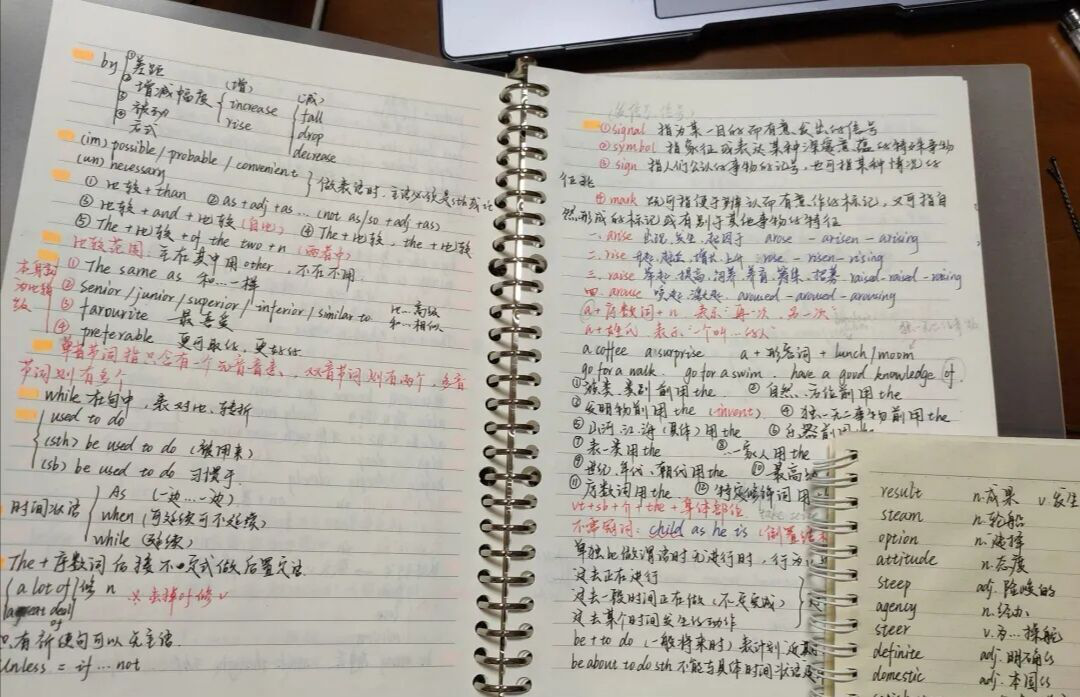 by ①差距
②增减幅度 (增) increase rise (减) fall drop decrease
③被动
④方式
(im)possible / probable / convenient
(un)necessary 做表语时, 主语必须是sth或it
①比较+than ②as+adj+as... (not as/so+adj+as)
③比较+and+比较 (自比) ④The+比较, the+比较
⑤The+比较+of the two+n (两者中)
比较范围: 主在其中用other, 不在不用.
本身就为比较级
①The same as 和...一样
②senior/junior/superior/inferior/similar to 比...高级 和...相似
③favourite 最喜爱
④preferable 更可取的, 更好的
单音节词指只含有一个元音音素, 双音节词则有两个, 多音
节词则有多个
while 在句中, 表对比、转折
used to do
(sth) be used to do (被用来)
(sb) be used to do 习惯于
时间状语 As (一边...一边)
when (可延续可不延续)
while (延续)
The+序数词后接不定式做后置定语
a lot of 修n ※去掉of修v
a great deal of
只有祈使句可以无主语
Unless = if ... not
①signal 指为某一目的而有意发出的信号
②symbol 指象征或表达某种深邃意蕴的特殊事物
③sign 指人们公认的事物的记号, 也可指某种情况的
征兆
④mark 既可指便于辨认而有意作的标记, 又可指自
然形成的标记或有别于其他事物的特征
一. arise 出现, 发生, 起因于 arose - arisen - arising
二. rise 升起, 起立, 增长, 上升 rose - risen - rising
三. raise 举起, 提高, 饲养, 养育, 筹集, 招募 raised - raised - raising
四. arouse 唤起, 激起 aroused - aroused - arousing
a+序数词+n 表示“再一次, 另一次”
a+姓氏 表示“一个叫...的人”
a coffee a surprise a+形容词+lunch/moom
go for a walk. go for a swim. have a good knowledge of
①族类, 类别前用the ②自然、方位前用the
③发明物前用the (invent) ④独一无二事物前用the
⑤山河, 江, 海 (具体) 用the ⑥乐器前用the
⑦表一类用the ⑧一家人用the
⑨世纪, 年代, 朝代用the ⑩最高
⑪序数词用the ⑫特定修饰词用
vt+sb+介+the+身体部位
不带冠词: child as he is (倒置结
单独be做谓语时无进行时, 行为
过去正在进行
过去一段时间正在做 (不一定完成)
过去某个时间发生的动作
be+to do (一般将来时) 表计划
be about to do sth 不能与具体时间状语
result n.成果 v.发生
steam n.轮船
option n.选择
attitude n.态度
steep adj.险峻的
agency n.经办
steer v.为...操舵
definite adj.明确的
domestic adj.本国的